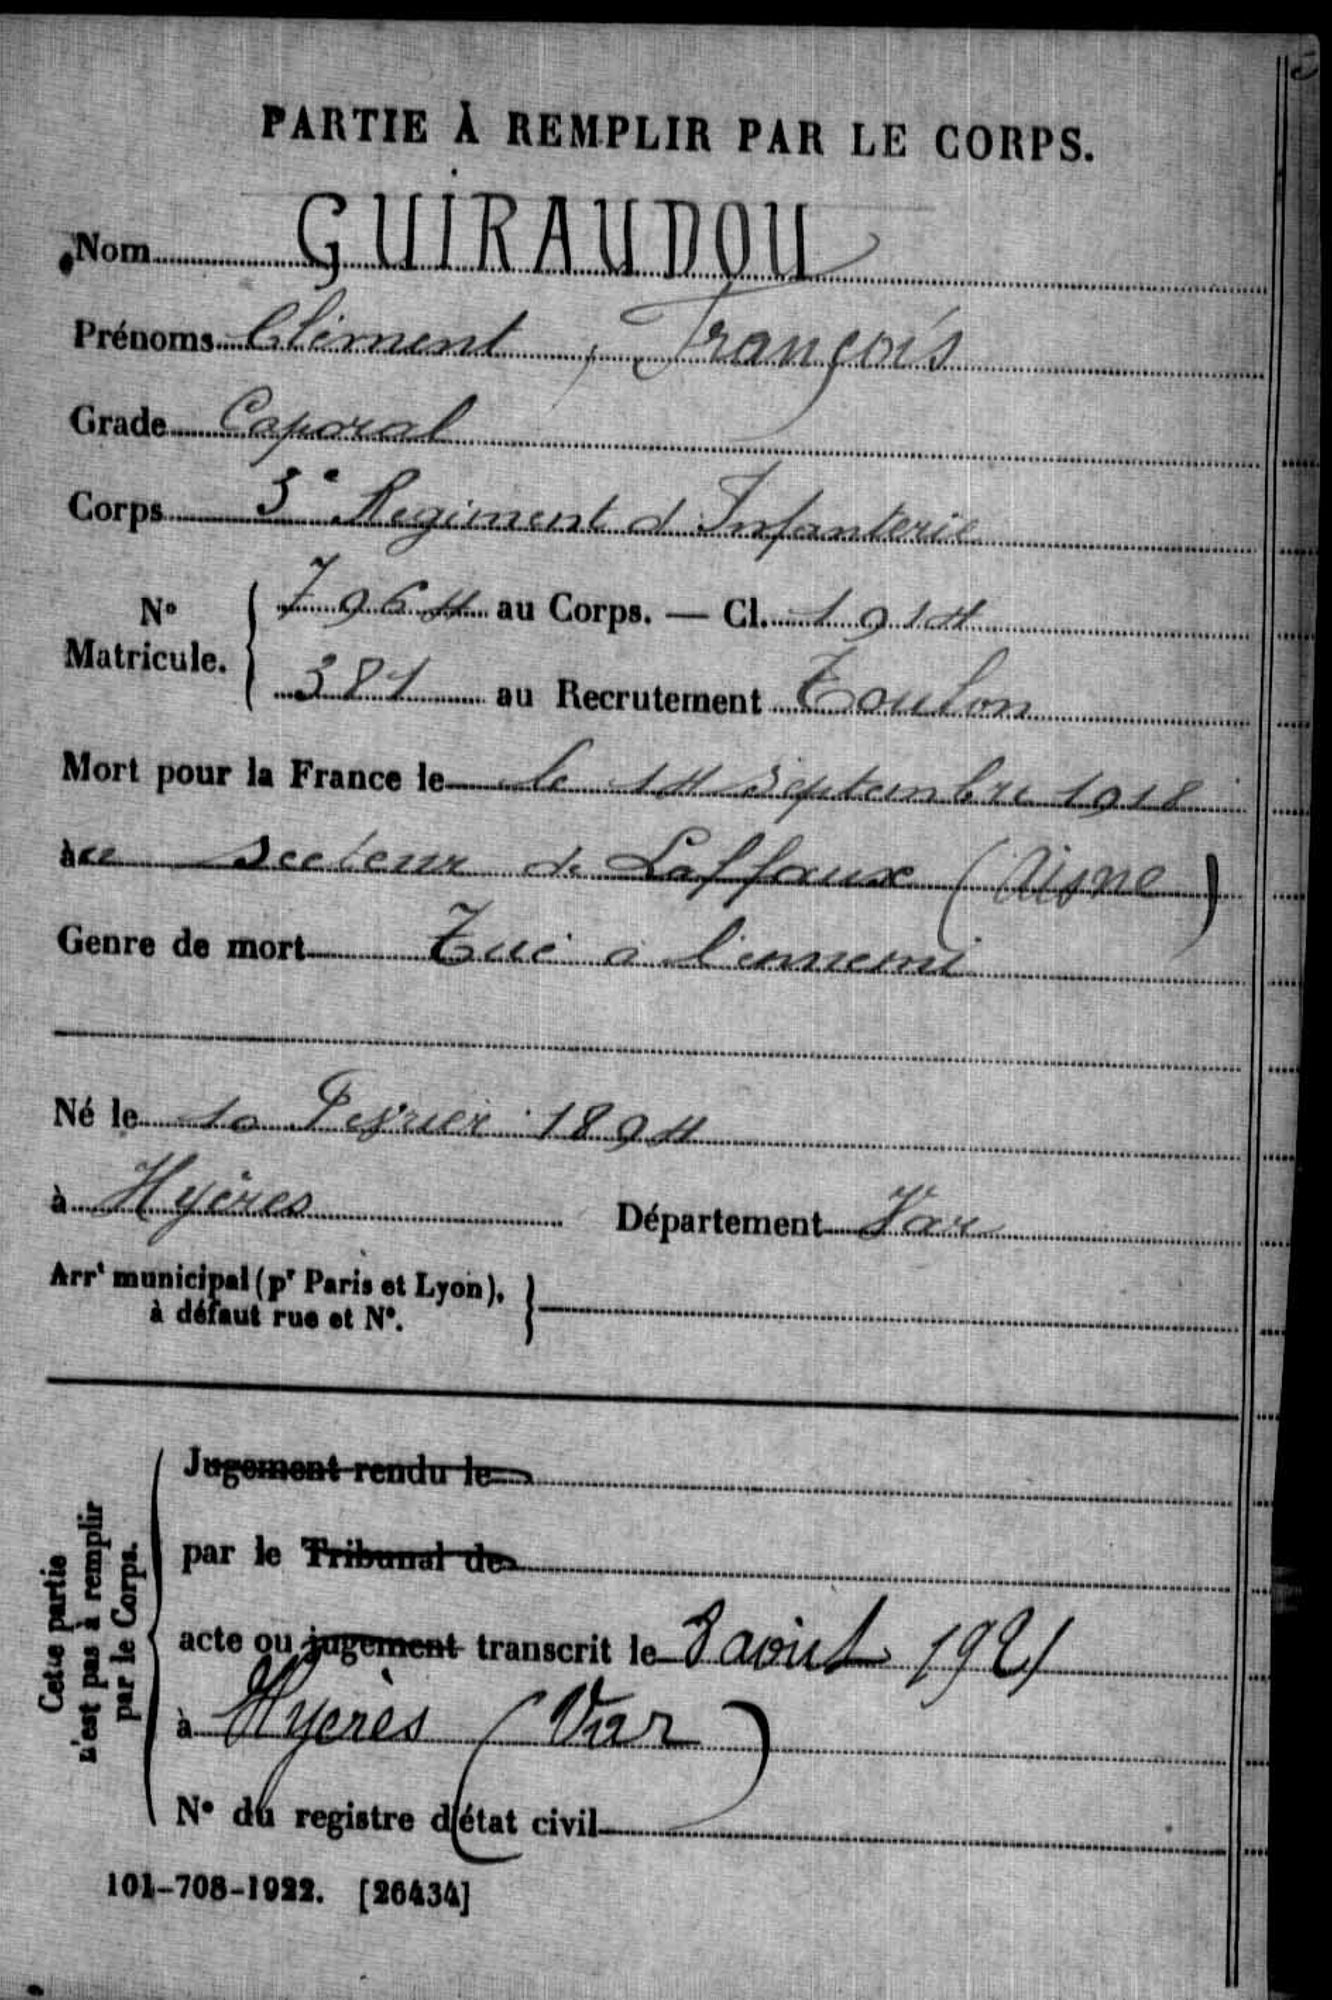 PARTIE À REMPLIR PAR LE CORPS.
Nom GUIRAUDOU
Prénoms Clément, François
Grade Caporal
Corps 3e Régiment d'Infanterie
N° Matricule. 7964 au Corps. — Cl. 1914
381 au Recrutement Toulon
Mort pour la France le le 14 Septembre 1918
au Secteur de Laffaux (Aisne)
Genre de mort Tué à l'ennemi
Né le 10 Février 1894
à Hyères Département Var
Arrt municipal (pr Paris et Lyon),
à défaut rue et N°.
Cette partie
n'est pas à remplir
par le Corps.
Jugement rendu le
par le Tribunal de
acte ou jugement transcrit le 8 août 1921
à Hyères (Var)
N° du registre d'état civil
101-708-1922. [26434]